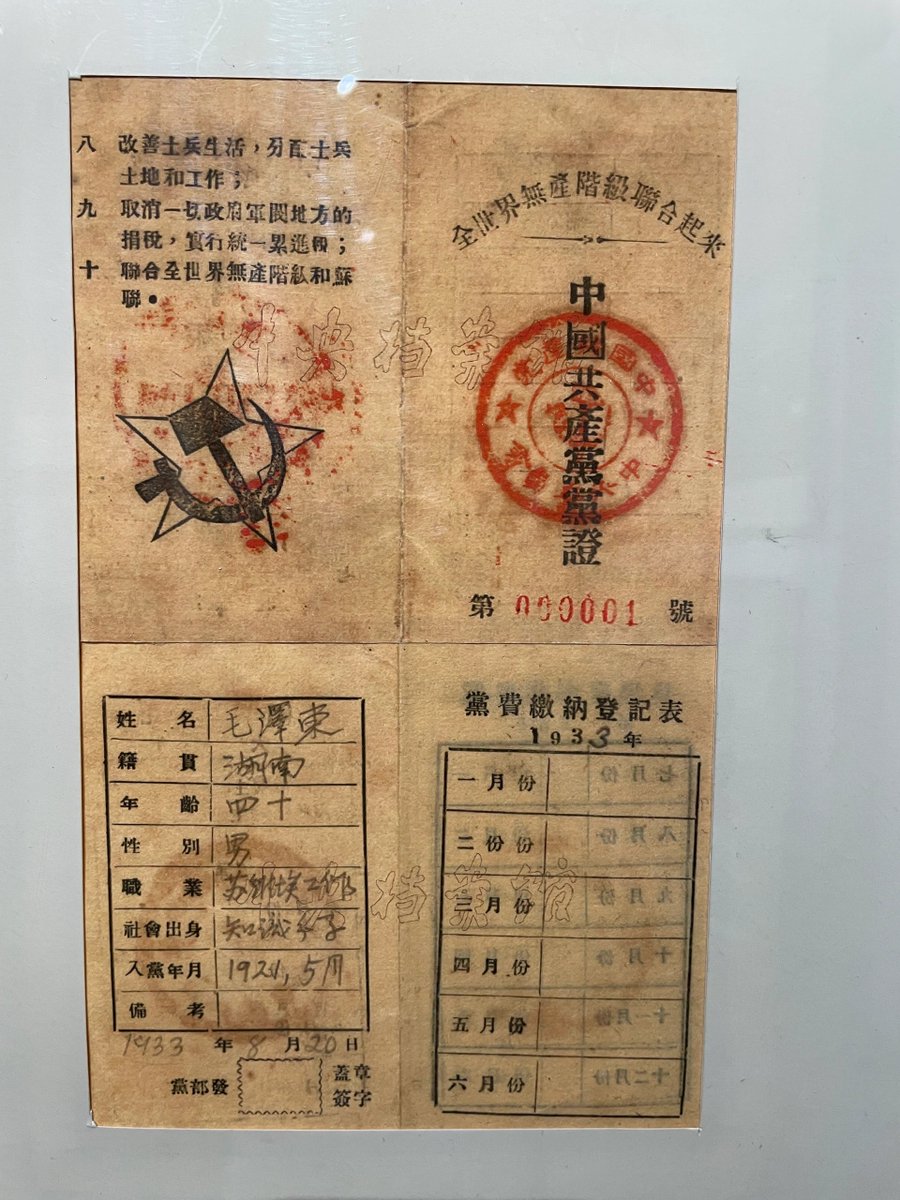 八 改善士兵生活，分配士兵
土地和工作；
九 取消一切政府軍閥地方的
捐稅，實行統一累進稅；
十 聯合全世界無產階級和蘇
聯。
全世界無產階級聯合起來
中國共產黨黨證
第 000001 號
中央档案馆
姓名 毛澤東
籍貫 湖南
年齡 四十
性別 男
職業
社會出身 知識分子
入黨年月 1921，5月
備考
1933年8月20日
黨部發
蓋章
簽字
黨費繳納登記表
1933年
一月份
二份份
三月份
四月份
五月份
六月份
七月份
八月份
九月份
十月份
十一月份
十二月份
档案馆